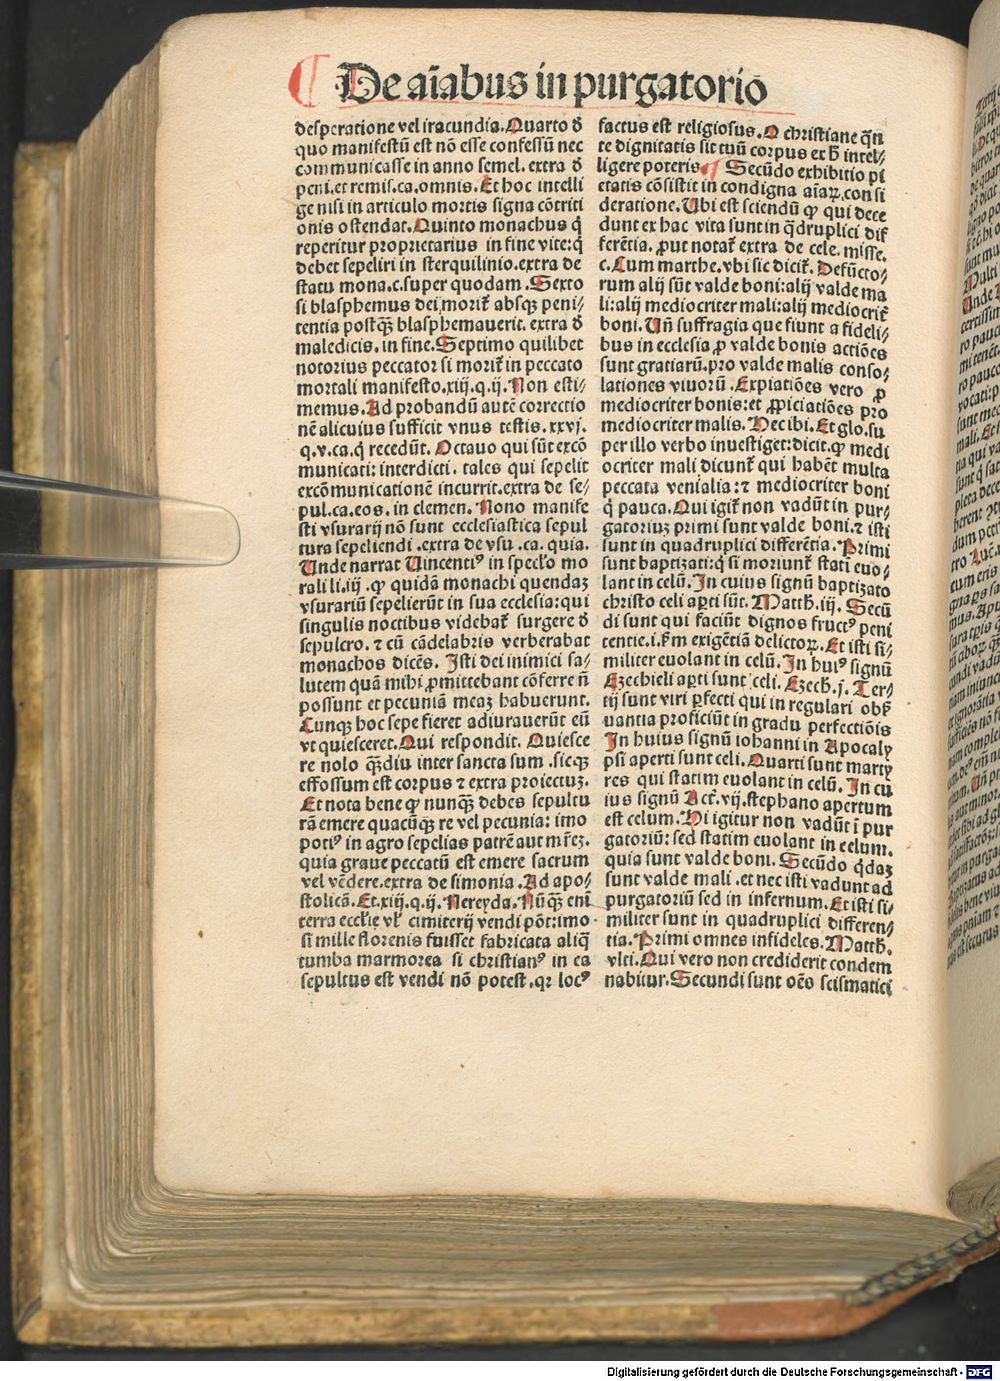 De aīabus in purgatorio
desperatione vel iracundia. Quarto đ
quo manifestū est nō esse confessū nec
communicasse in anno semel. extra đ
peni. et remis. ca. omnis. Et hoc intelli
ge nisi in articulo mortis signa cōtriti
onis ostendat. Quinto monachus q̇
reperitur proprietarius in fine vite: q̇
debet sepeliri in sterquilinio. extra de
statu mona. c. super quodam. Sexto
si blasphemus dei morit᷑ absqꝫ peni⸗
tentia postq̄ꝫ blasphemauerit. extra đ
maledicis. in fine. Septimo quilibet
notorius peccator si morit᷑ in peccato
mortali manifesto. xiij. q. ij. Non esti⸗
memus. Ad probandū autē correctio
nē alicuius sufficit vnus testis. xxvj.
q. v. ca. q̇ recedūt. Octauo qui sūt excō
municati: interdicti. tales qui sepelit
excōmunicationē incurrit. extra de se⸗
pul. ca. eos. in clemen. Nono manife
sti vsurarij nō sunt ecclesiastica sepul
tura sepeliendi. extra de vsu. ca. quia.
Unde narrat Uincentiꝰ in spec̄lo mo
rali li. iij. ꝙ quidā monachi quendaꝫ
vsurariū sepelierūt in sua ecclesia: qui
singulis noctibus videbat᷑ surgere đ
sepulcro. ⁊ cū cādelabris verberabat
monachos dicēs. Isti dei inimici sa⸗
lutem quā mihi ꝓmittebant cōferre n̄
possunt et pecuniā meaꝫ habuerunt.
Cunqꝫ hoc sepe fieret adiurauerūt eū
vt quiesceret. Qui respondit. Quiesce
re nolo q̄ꝫdiu inter sancta sum. sicqꝫ
effossum est corpus ⁊ extra proiectuꝫ.
Et nota bene ꝙ nunq̄ꝫ debes sepultu
rā emere quacūqꝫ re vel pecunia: imo
potiꝰ in agro sepelias patrē aut mr̄eꝫ.
quia graue peccatū est emere sacrum
vel vēdere. extra de simonia. Ad apo⸗
stolicā. Et. xiij. q. ij. Nereyda. Nūq̄ꝫ enī
terra eccl̄ie vl̄ cimiterij vendi pōt: imo
si mille florenis fuisset fabricata aliq̄
tumba marmorea si christianꝰ in ea
sepultus est vendi nō potest. qꝛ locꝰ
factus est religiosus. O christiane q̄n
te dignitatis sit tuū corpus ex h̄ intel⸗
ligere poteris ¶ Secūdo exhibitio pi
etatis cōsistit in condigna aīaꝝ. con si
deratione. Ubi est sciendū ꝙ qui dece
dunt ex hac vita sunt in q̄druplici dif
ferētia. ꝓut notat᷑ extra de cele. misse.
c. Cum marthe. vbi sic dicit᷑. Defūcto⸗
rum alij sūt valde boni: alij valde ma
li: alij mediocriter mali: alij mediocrit᷑
boni. Un̄ suffragia que fiunt a fideli⸗
bus in ecclesia ꝓ valde bonis actiōes
sunt gratiarū. pro valde malis conso⸗
lationes viuorū. Expiatiōes vero ꝓ
mediocriter bonis: et ꝓpiciatiōes pro
mediocriter malis. Hec ibi. Et glo. su
per illo verbo inuestiget: dicit. ꝙ medi
ocriter mali dicunt᷑ qui habēt multa
peccata venialia: ⁊ mediocriter boni
q̇ pauca. Qui igit᷑ non vadūt in pur⸗
gatoriuꝫ primi sunt valde boni. ⁊ isti
sunt in quadruplici differētia. Primi
sunt baptizati: q̇ si moriunt᷑ stati euo⸗
lant in celū. In cuius signū baptizato
christo celi aꝑti sūt. Matth. iij. Secū
di sunt qui faciūt dignos fructꝰ peni
tentie. i. ẜm exigētiā delictoꝝ. Et isti si⸗
militer euolant in celū. In huiꝰ signū
Ezechieli aꝑti sunt celi. Ezech. j. Ter⸗
tij sunt viri ꝑfecti qui in regulari obẜ
uantia proficiūt in gradu perfectiōis
In huius signū iohanni in Apocaly
psi aperti sunt celi. Quarti sunt marty
res qui statim euolant in celū. In cu
ius signū Act᷑. vij. stephano apertum
est celum. Hi igitur non vadūt ī pur
gatoriū: sed statim euolant in celum.
quia sunt valde boni. Secūdo q̇daꝫ
sunt valde mali. et nec isti vadunt ad
purgatoriū sed in infernum. Et isti si⸗
militer sunt in quadruplici differen⸗
tia. Primi omnes infideles. Matth.
vlti. Qui vero non crediderit condem
nabitur. Secundi sunt oēs scismatici
Digitalisierung gefördert durch die Deutsche Forschungsgemeinschaft - DFG